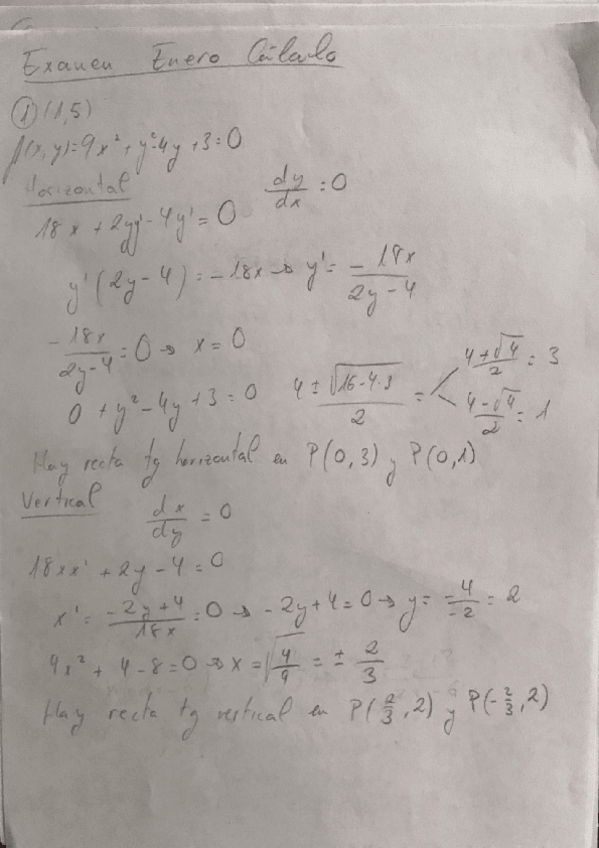 Examen Enero Cálculo
① (1,5)
f(x,y)=9x²+y²-4y+3=0
Horizontal dy/dx = 0
18x + 2yy' - 4y' = 0
y'(2y-4) = -18x → y' = -18x/(2y-4)
-18x/(2y-4) = 0 → x = 0
0 + y² - 4y + 3 = 0 (4 ± √(16-4·3))/2 = < (4+√4)/2 = 3
(4-√4)/2 = 1
Hay recta tg horizontal en P(0,3) y P(0,1)
Vertical dx/dy = 0
18xx' + 2y - 4 = 0
x' = (-2y+4)/18x = 0 → -2y+4 = 0 → y = -4/-2 = 2
9x² + 4 - 8 = 0 → x = √(4/9) = ± 2/3
Hay recta tg vertical en P(2/3, 2) y P(-2/3, 2)